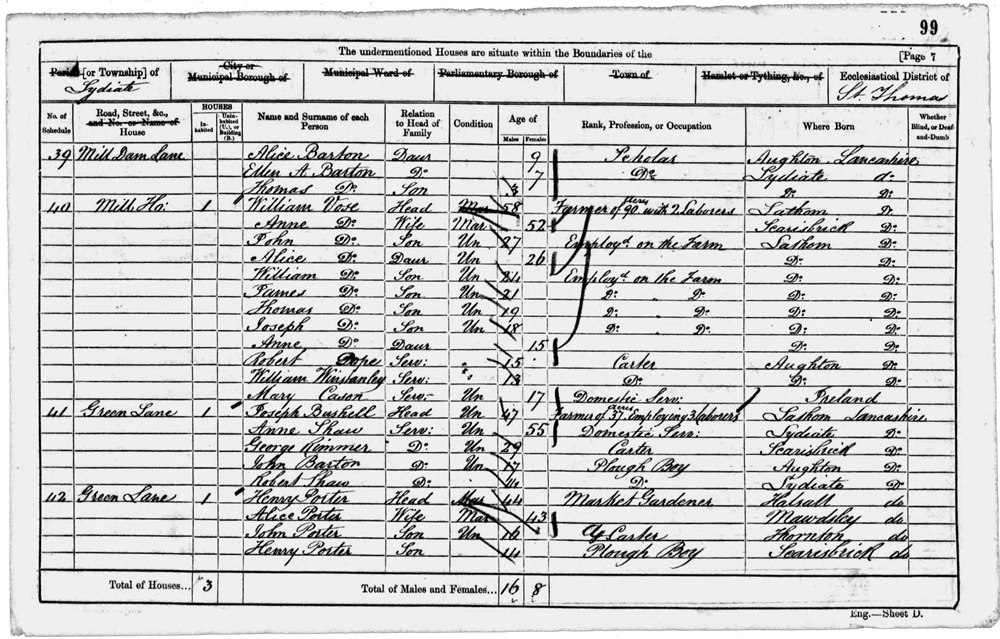 99
The undermentioned Houses are situate within the Boundaries of the [Page 7
Parish [or Township] of City or Municipal Borough of Municipal Ward of Parliamentary Borough of Town of Hamlet or Tything, &c., of Ecclesiastical District of
Lydiate St. Thomas
No. of Schedule Road, Street, &c., and No. or Name of House HOUSES Inhabited Uninhabited (U.), or Building Name and Surname of each Person Relation to Head of Family Condition Age of Males Females Rank, Profession, or Occupation Where Born Whether Blind, or Deaf-and-Dumb
39 Mill Dam Lane Alice Barton Daur 9 Scholar Aughton Lancashire
Ellen A. Barton Do 7 Do Lydiate do
Thomas Do Son 3 Do Do
40 Mill Ho: 1 William Vose Head Mar 58 Farmer of 90 acres with 2 Laborers Lathom Do
Anne Do Wife Mar 52 Scarisbrick Do
John Do Son Un 27 Employd on the Farm Lathom Do
Alice Do Daur Un 26 Do Do
William Do Son Un 24 Employd on the Farm Do Do
James Do Son Un 21 Do Do Do Do
Thomas Do Son Un 19 Do Do Do Do
Joseph Do Son Un 18 Do Do Do Do
Anne Do Daur 15 Do Do
Robert Serv: 15 Carter Aughton Do
William Winstanley Serv: 13 Do Do Do
Mary Cason Serv: Un 17 Domestic Serv: Ireland
41 Green Lane 1 Joseph Bushell Head Un 47 Farmer of 37 acres Employing 3 laborers Lathom Lancashire
Anne Shaw Serv: Un 55 Domestic Serv: Lydiate Do
George Rimmer Do Un 29 Carter Scarisbrick Do
John Barton Do Un 17 Plough Boy Aughton Do
Robert Shaw Do 14 Do Lydiate Do
42 Green Lane 1 Henry Porter Head Mar 44 Market Gardener Halsall do
Alice Porter Wife Mar 43 Mawdsley do
John Porter Son Un 16 Carter Thornton do
Henry Porter Son 14 Plough Boy Scarisbrick do
Total of Houses... 3 Total of Males and Females... 16 8
Eng.—Sheet D.